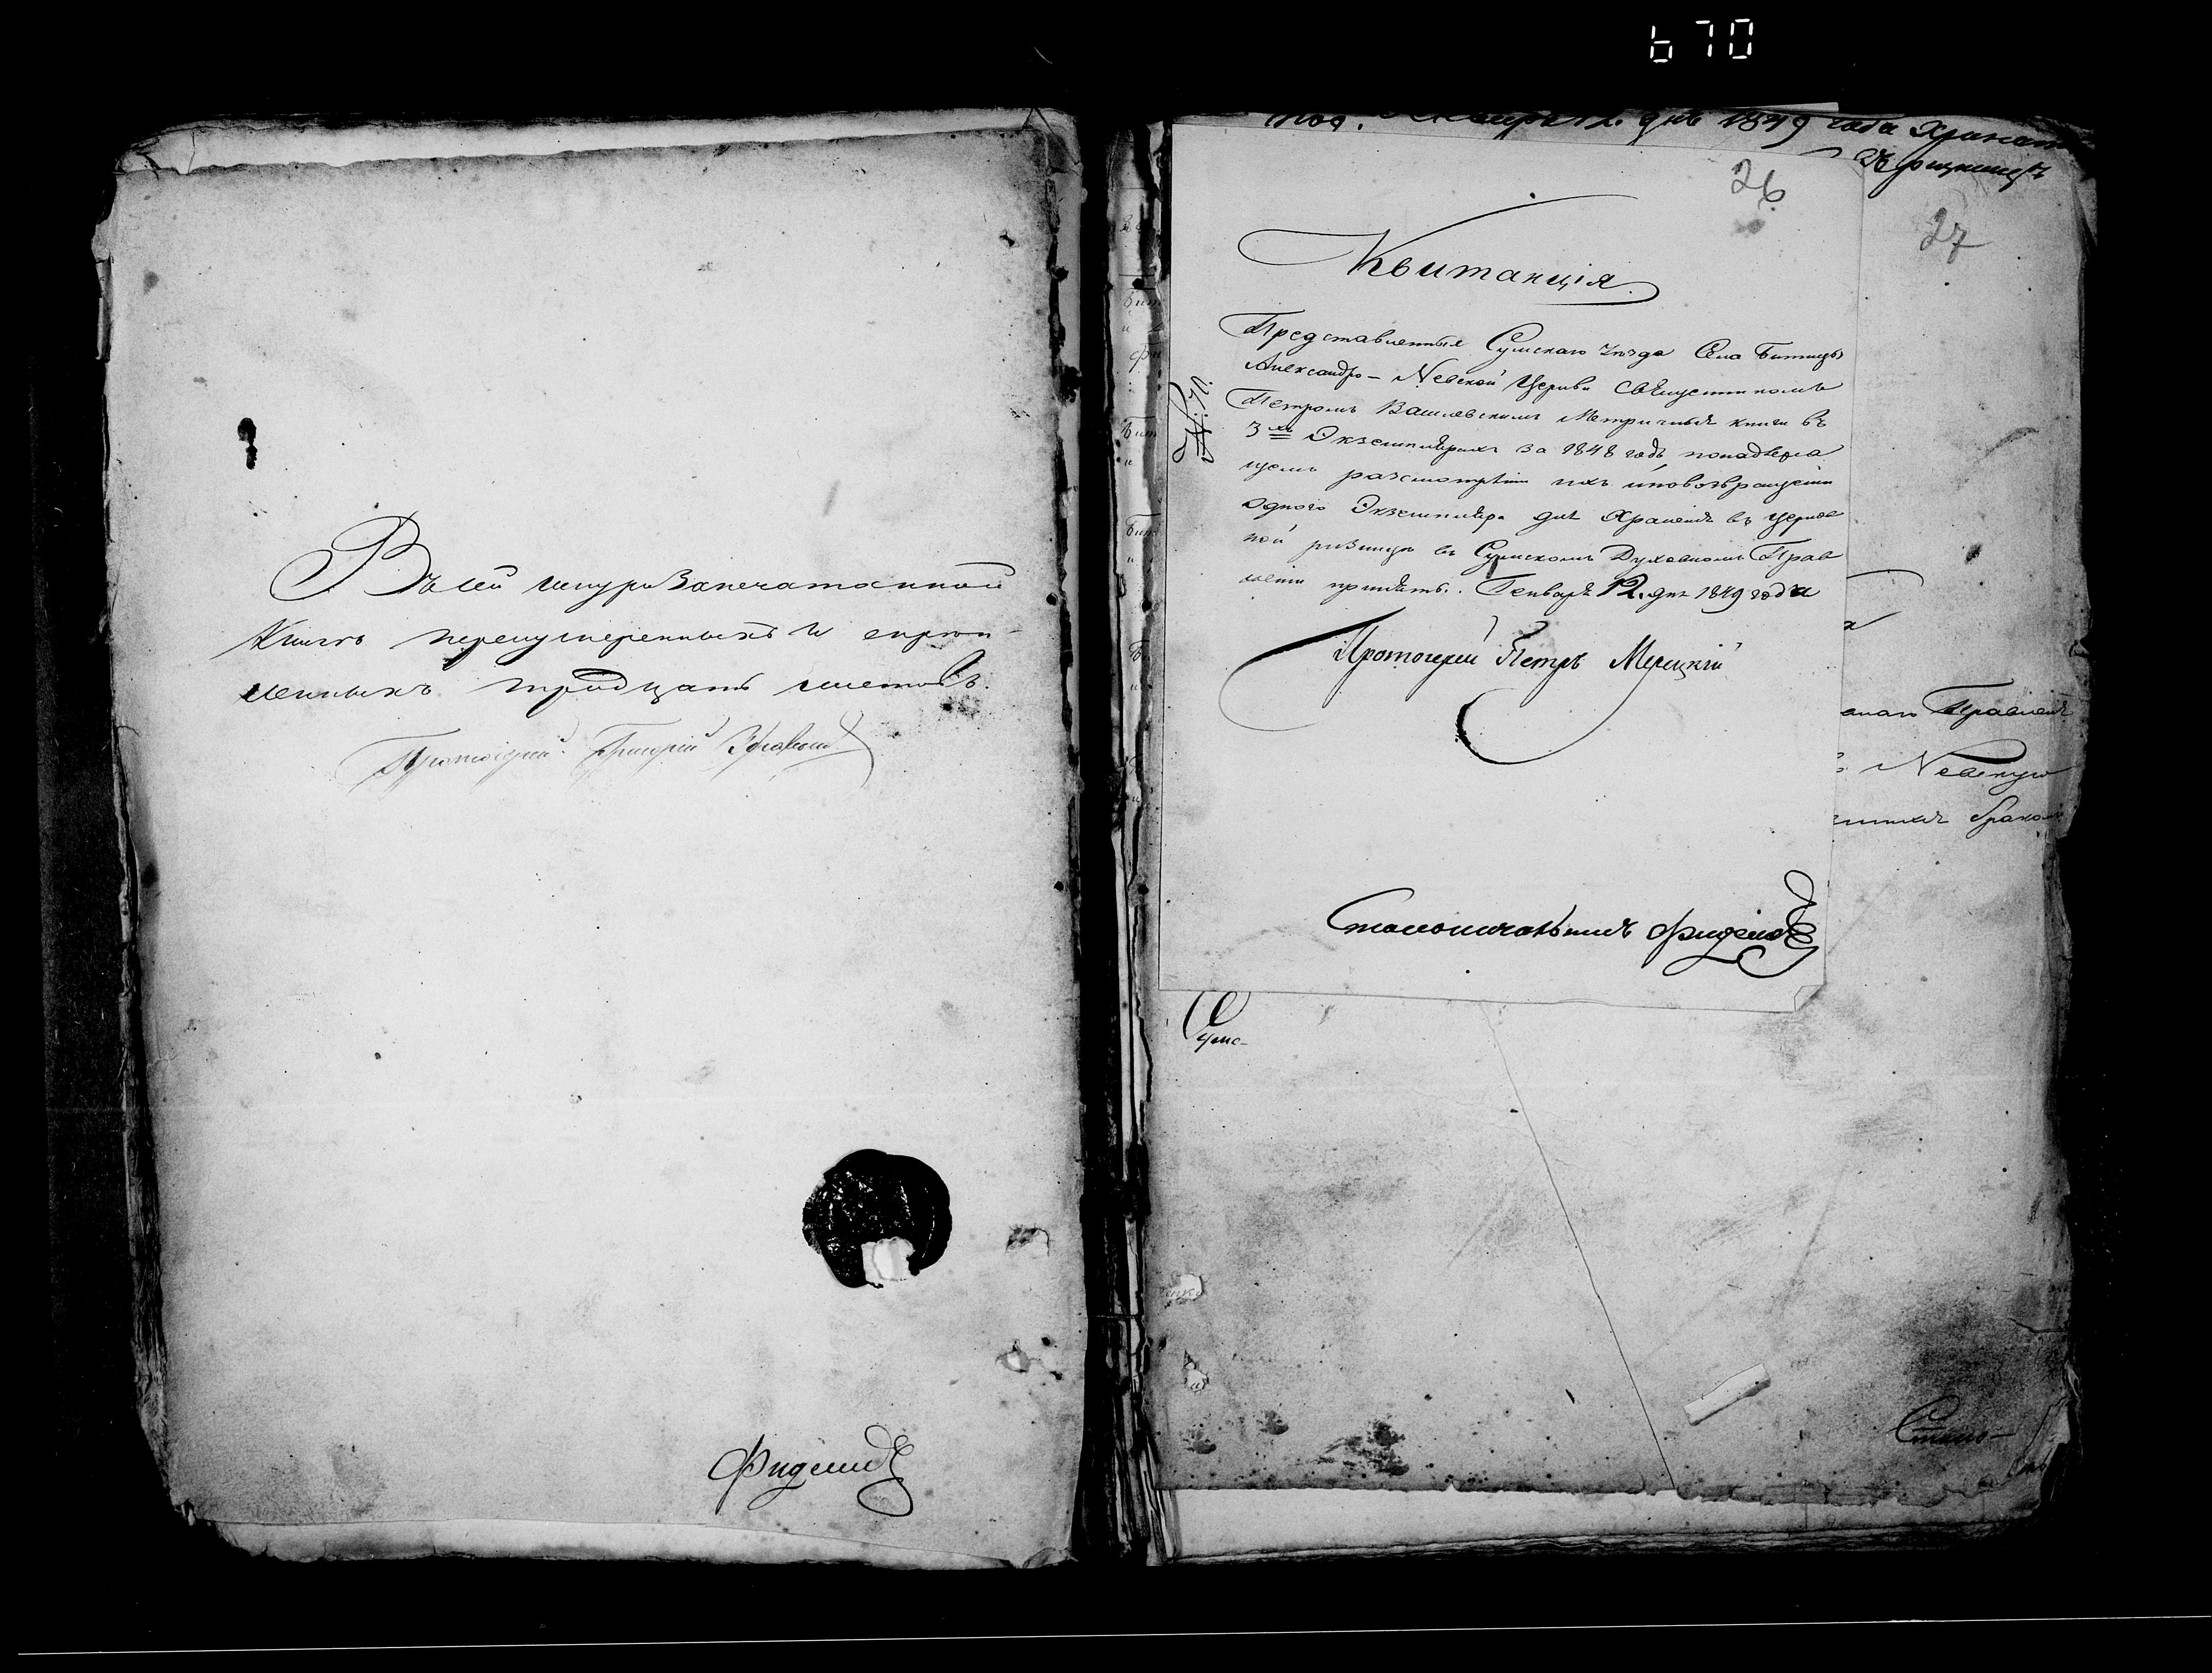 670
Въ сей шнурозапечатанной
Книгѣ перенумеренныхъ и скрѣп-
ленныхъ тридцать листовъ.
Протоіерей Григорій
Фиделинъ
года 1849 дня
26
27
Квитанція
Представленныя Сумскаго уѣзда Села Битицы
Александро-Невской Церкви Священникомъ
Петромъ Василевскимъ Метричныя книги въ
3хъ Экземплярахъ за 1848 годъ по надлежа
щемъ разсмотрѣніи ихъ и по возвращеніи
одного Экземпляра для Храненія въ церков
ной ризницѣ въ Сумскомъ Духовномъ Прав
леніи приняты. Генваря 12. дня 1849 года
Протоіерей Петръ
Столоначальникъ Фиделинъ
Правленія
Невскую
Сумс-
Столо-